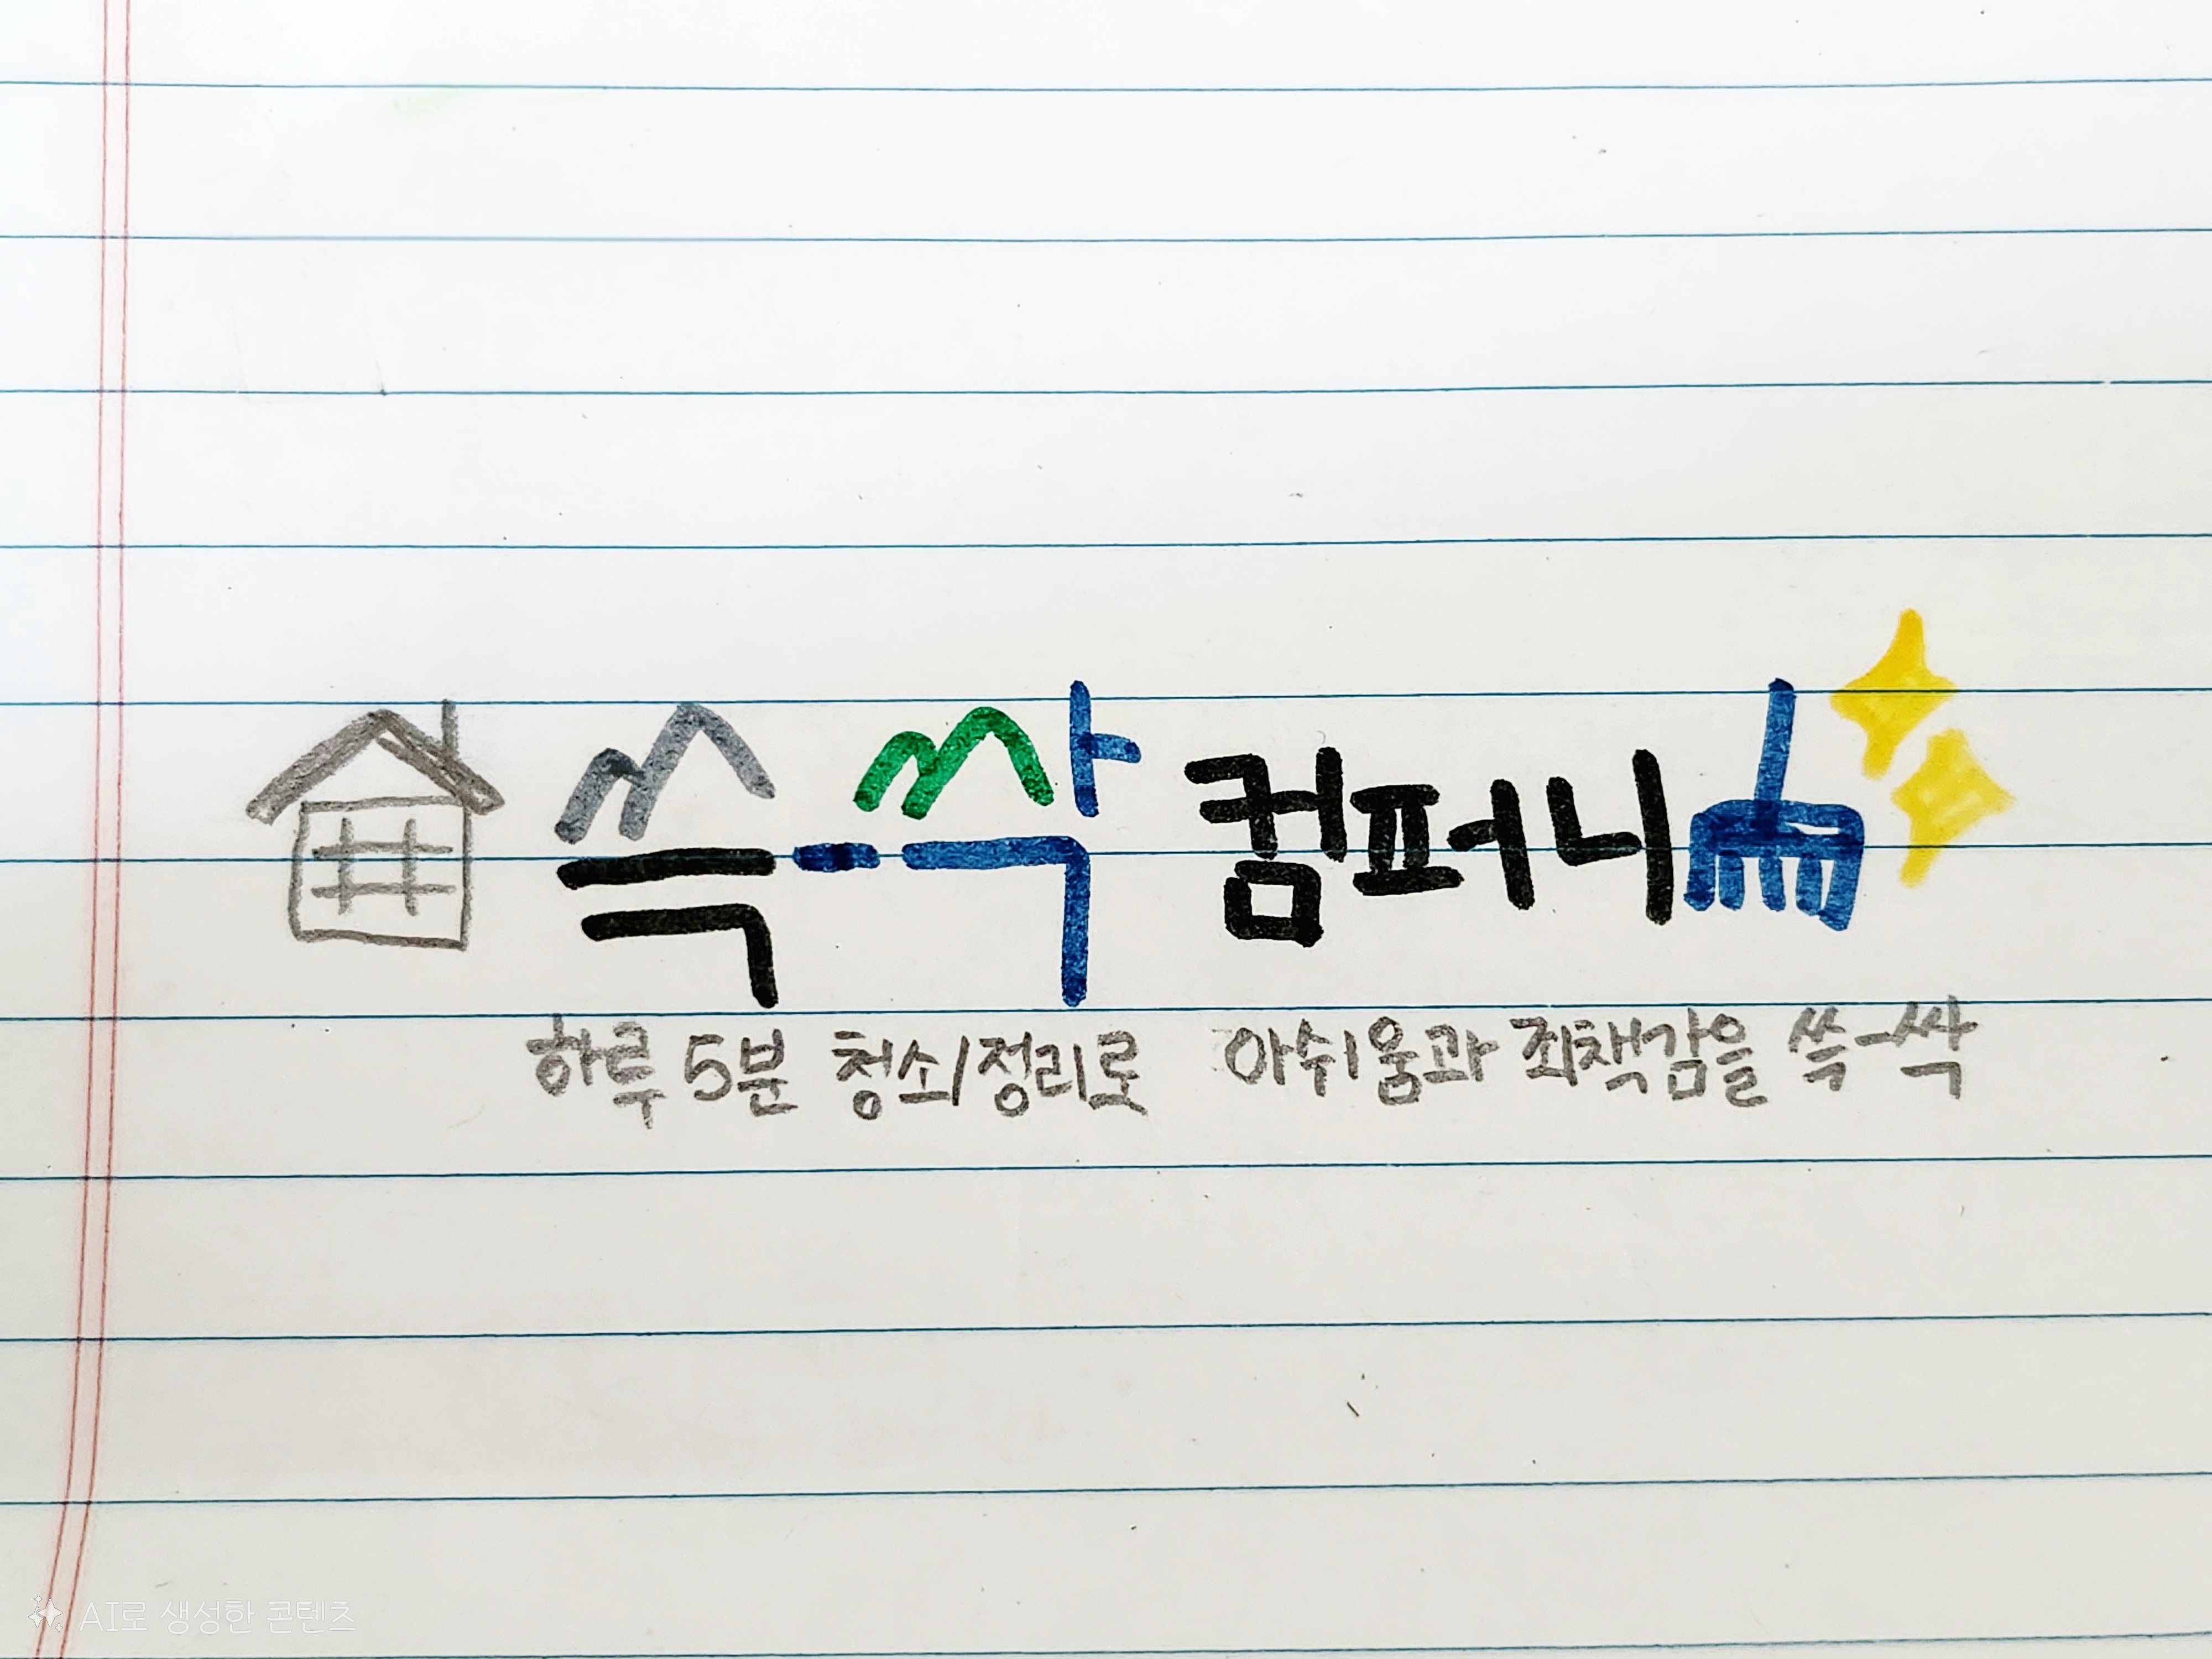 쓱-싹 컴퍼니
하루 5분 청소/정리로 아쉬움과 죄책감을 쓱-싹
AI로 생성한 콘텐츠